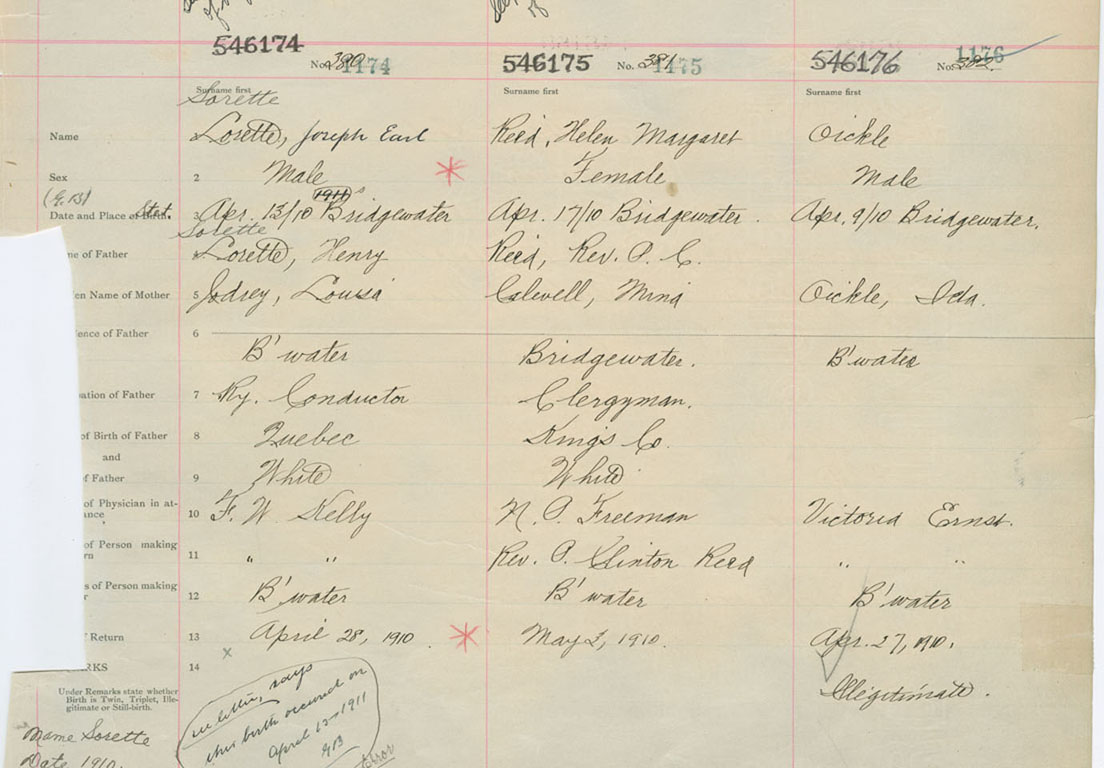 546174 No. 1174 546175 No. 381 1175 546176 No. 382. 1176
Surname first Surname first Surname first
Sorette
Name Lorette, Joseph Earl Reed, Helen Margaret Oickle
Sex 2 Male Female Male
(G.B) 1911
Date and Place of Birth. Stat. 3 Apr. 13/10 Bridgewater Apr. 17/10 Bridgewater. Apr. 9/10 Bridgewater.
Sorette
me of Father Lorette, Henry Reed, Rev. P. C.
en Name of Mother 5 Jodrey, Louisa Calwell, Mina Oickle, Ida.
ence of Father 6
B'water Bridgewater. B'water
ation of Father 7 Ry. Conductor Clergyman.
of Birth of Father 8 Quebec Kings Co.
and
f Father 9 White White
of Physician in at-
ance 10 F. W Kelly N. P. Freeman Victoria Ernst.
of Person making
rn 11 " " Rev. P. Clinton Reed " "
s of Person making
r 12 B'water B'water B'water
f Return 13 April 28, 1910. May 2, 1910. Apr. 27, 1910.
x
RKS 14
Under Remarks state whether
Birth is Twin, Triplet, Ille-
gitimate or Still-birth.
Illegitimate.
in letter, says
this birth occured on
April 13-1911
GB
error
Name Sorette
Date 1910.